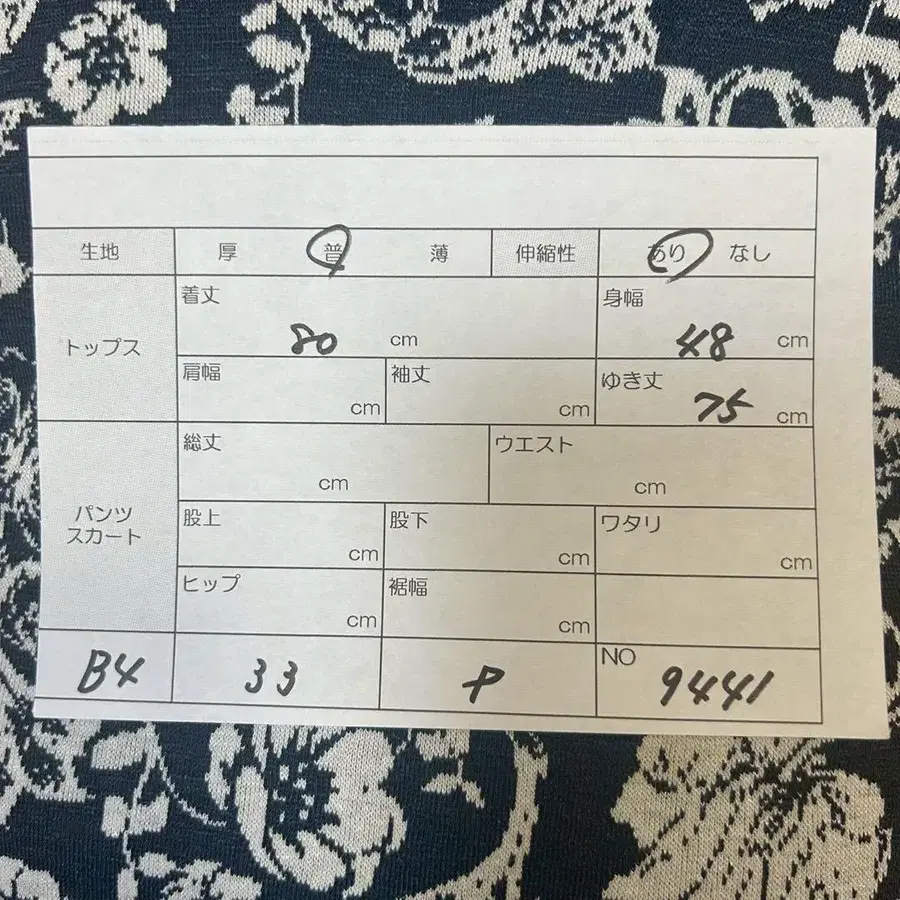 生地 厚 普 薄 伸縮性 あり なし
トップス
着丈 80 cm
身幅 48 cm
肩幅 cm
袖丈 cm
ゆき丈 75 cm
パンツ
スカート
総丈 cm
ウエスト cm
股上 cm
股下 cm
ワタリ cm
ヒップ cm
裾幅 cm
B4 33 P NO 9441